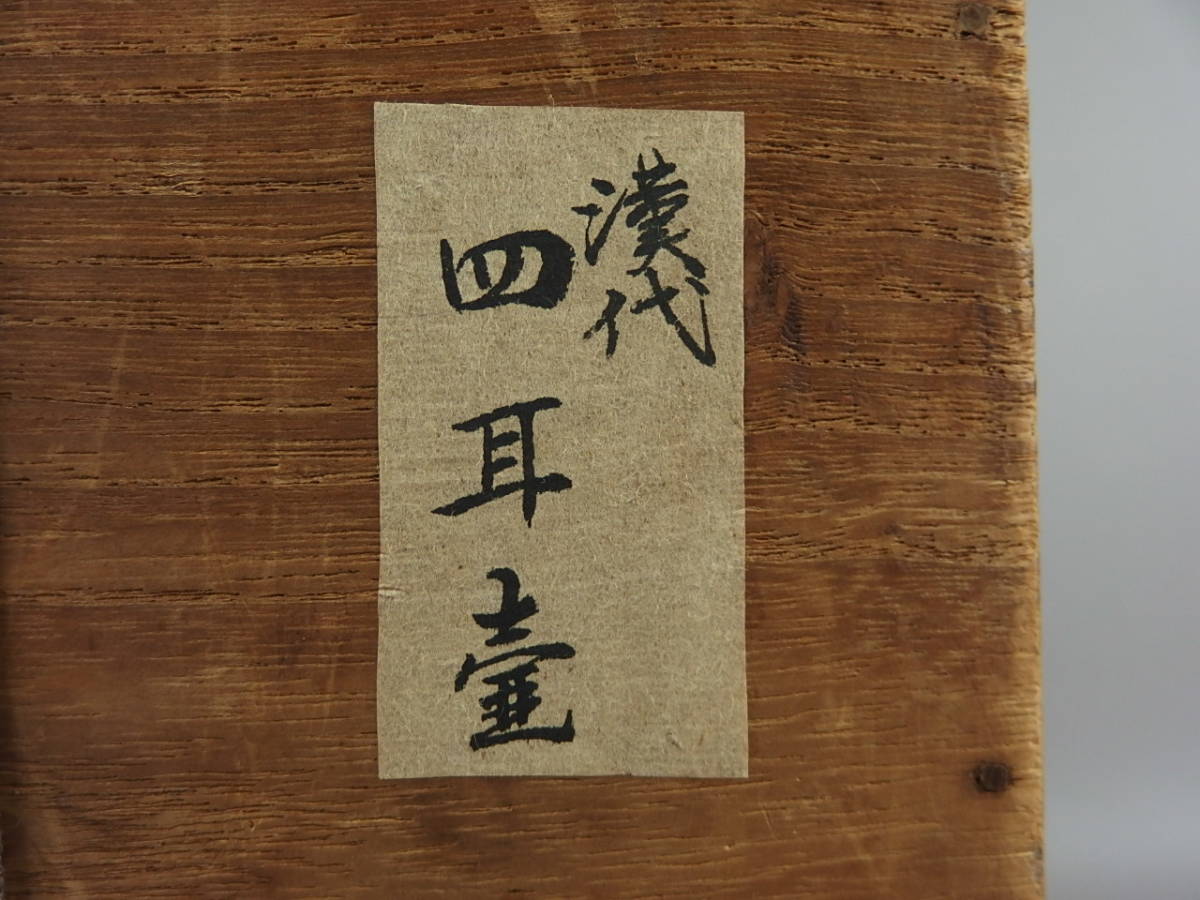 漢代
四耳壷